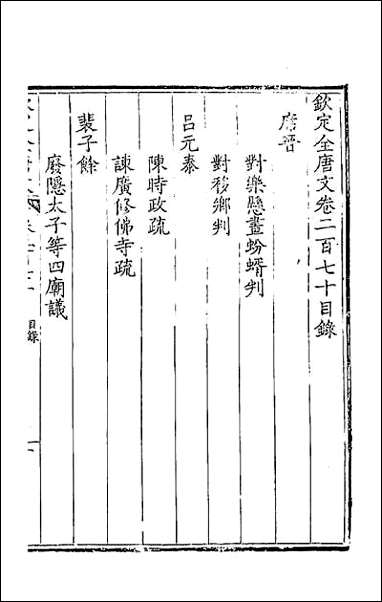 欽定全唐文卷二百七十目錄
席晉
對樂懸畫蚡蝑判
對移鄉判
吕元泰
陳時政疏
諫廣修佛寺疏
裴子餘
廢隱太子等四廟議
目錄